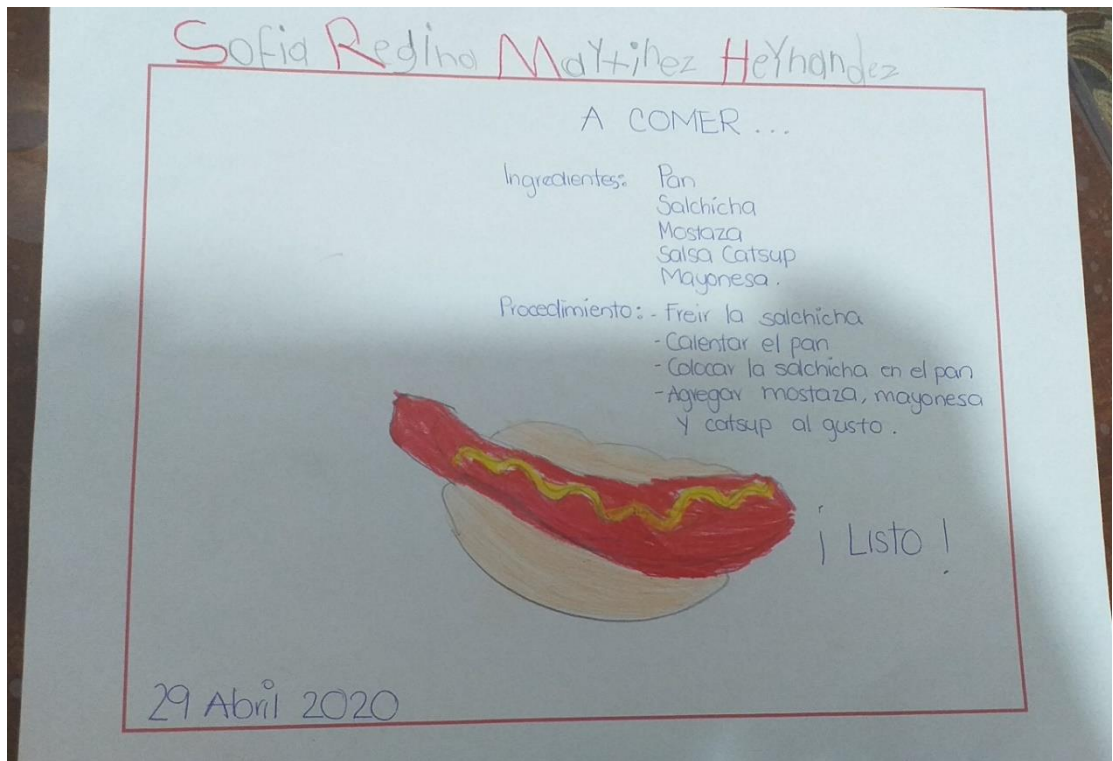 Sofia Regina Martinez Hernandez
A COMER ...
Ingredientes: Pan
Salchicha
Mostaza
Salsa Catsup
Mayonesa.
Procedimiento: - Freir la salchicha
- Calentar el pan
- Colocar la salchicha en el pan
- Agregar mostaza, mayonesa
y catsup al gusto.
¡ Listo !
29 Abril 2020